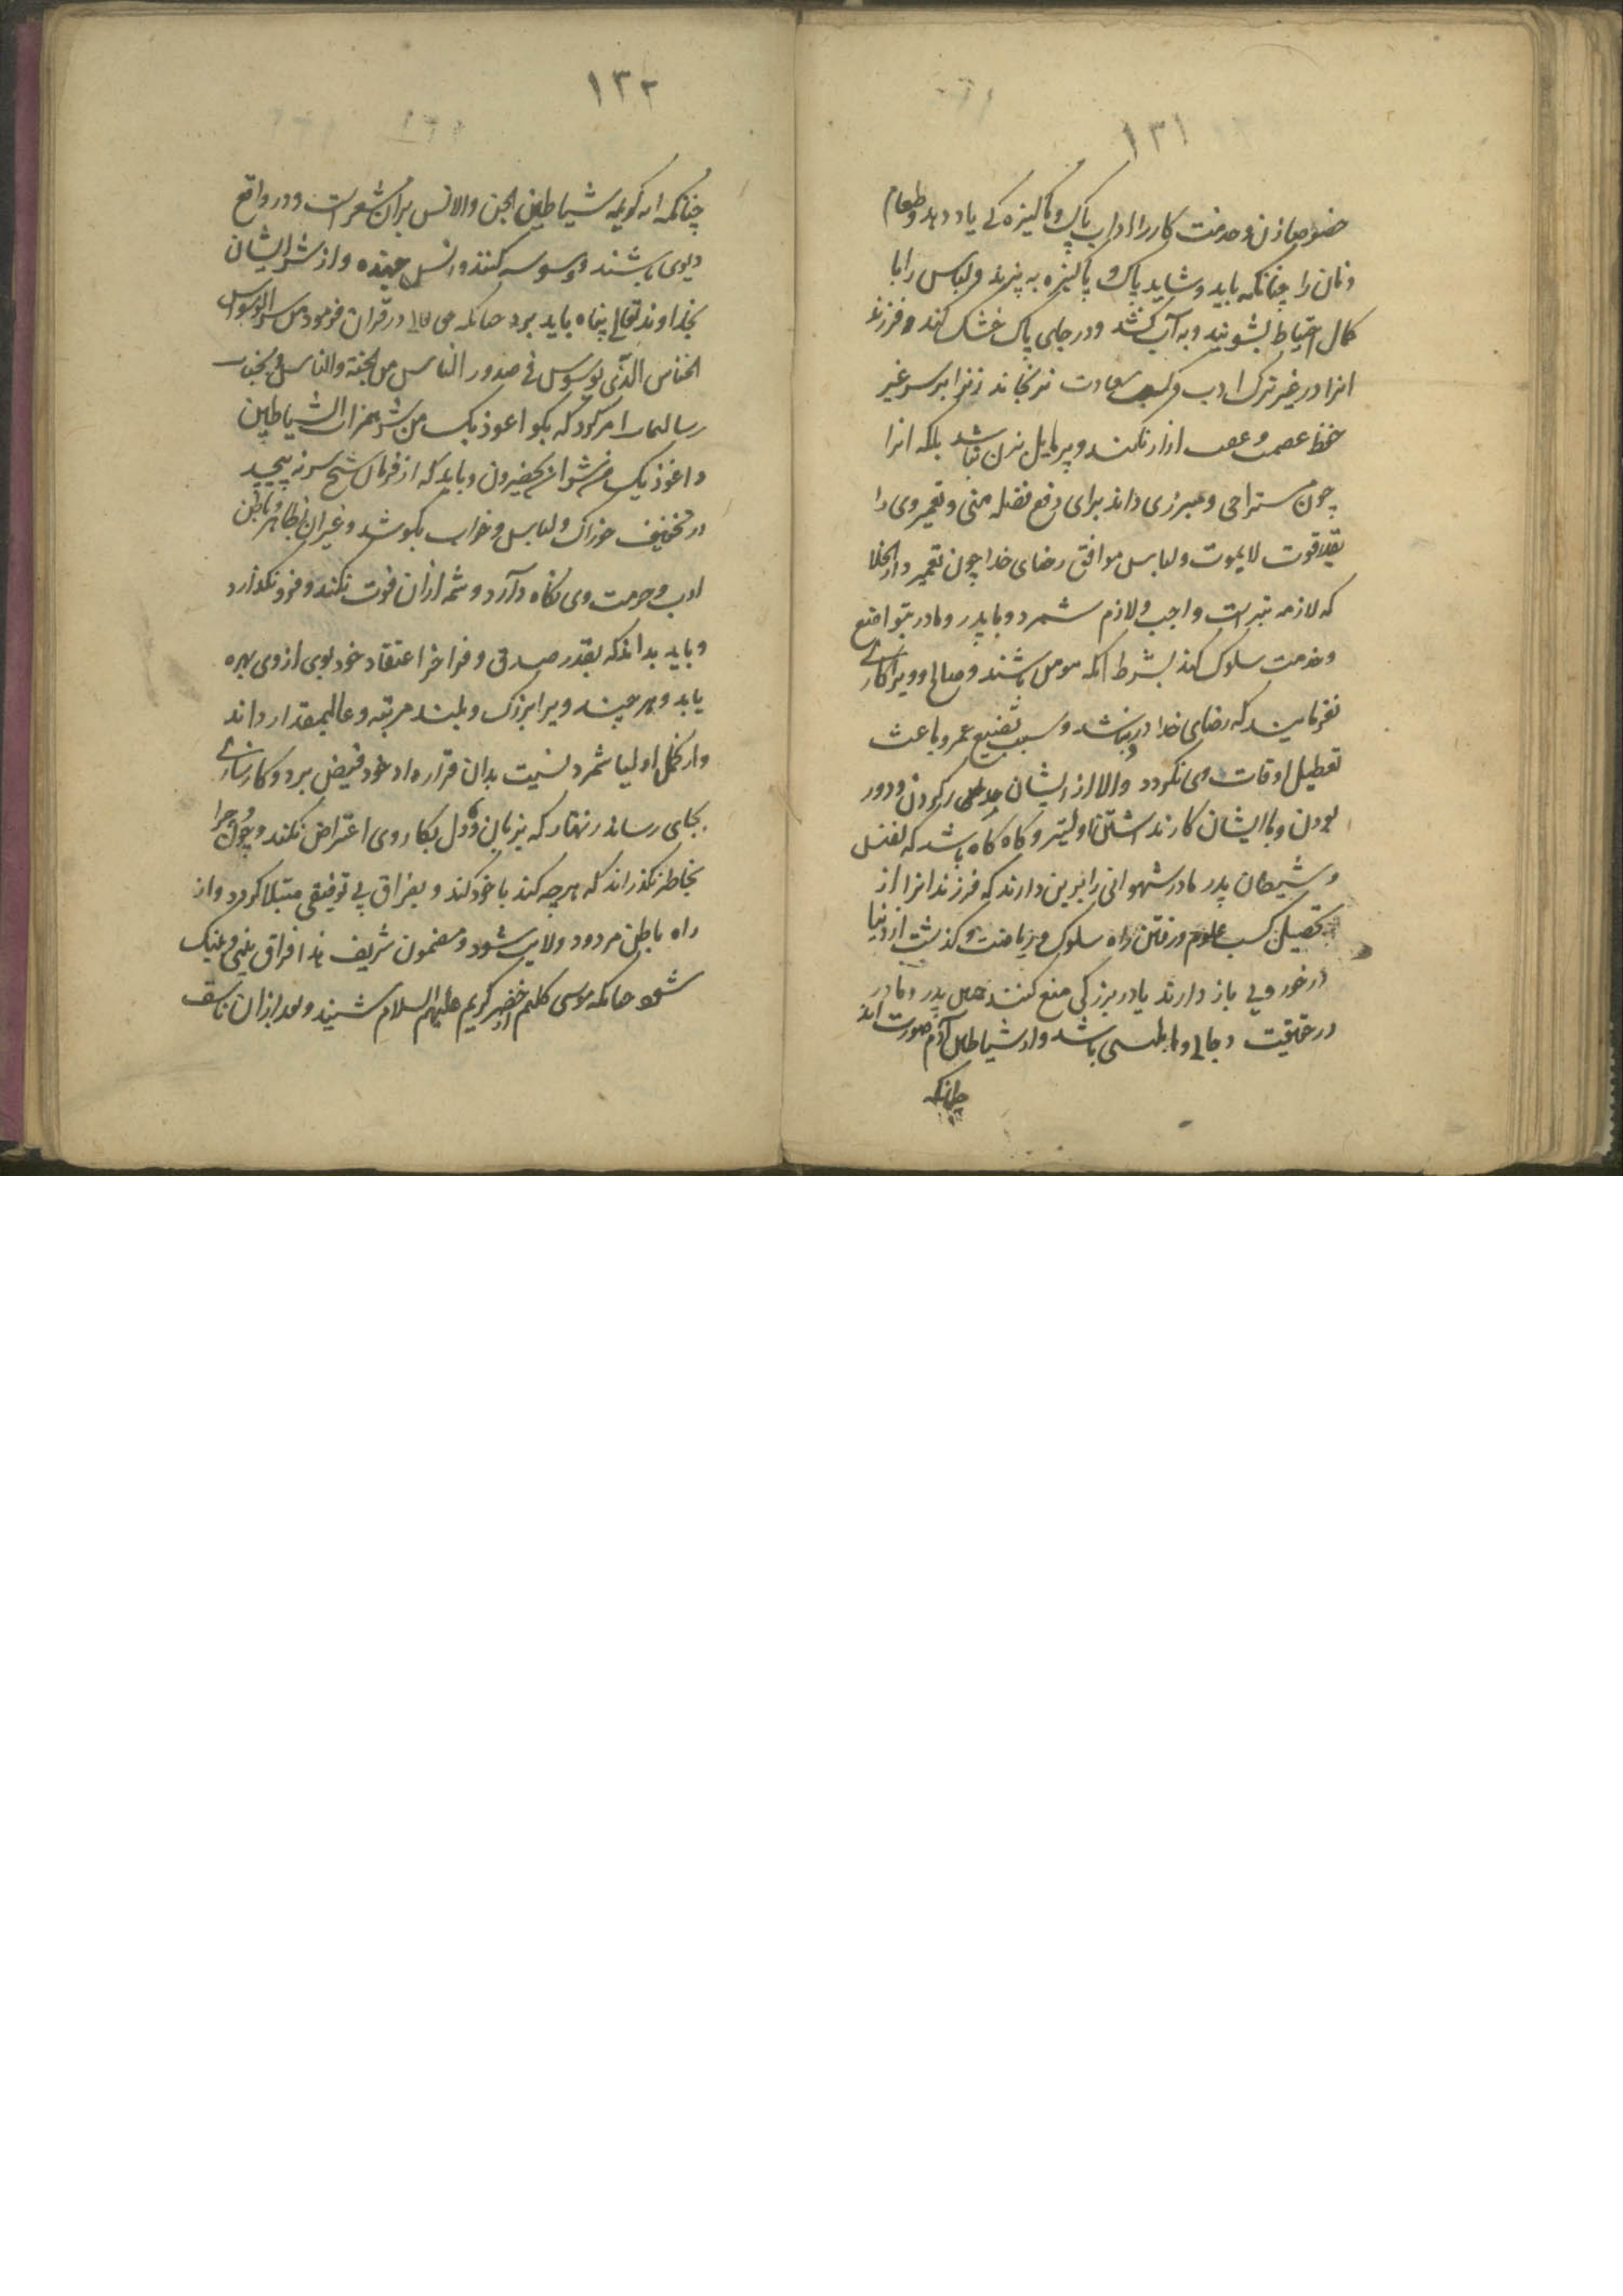 ۱۳۱
خصوصا زن و خدمت کار را آداب پاک و پاکیزه کی یاد دهد و طعام
و نان را چنانکه باید و شاید پاک و پاکیزه به پزند و لباس را با
کمال احتیاط بشویند و به آب کشد و در جای پاک خشک کند و فرزند
انرا در غیر ترک ادب و کسب سعادت نرنجاند زنرا بر سر غیر
حفظ عصمت و ازار نکند و پر مایل بزن نباشد بلکه انرا
چون مستراحی و مبرزی داند برای دفع فضله منی و تعمیر وی را
بقدر قوت لایموت و لباس موافق رضای خدا چون تعمیر دار الخلا
که لازمه است واجب و لازم شمرد و با پدر و مادر بتواضع
و خدمت سلوک کند بشرط انکه مومن باشند و صالح و ویرا کاری
نفرمایند که رضای خدا در نباشد و سبب تضییع عمر و باعث
تعطیل اوقات وی نکردد والا از ایشان کردن و دور
بودن و با ایشان کار نداشتن اولیتر و کاه کاه باشد که نفس
و شیطان پدر مادر شهوانی را برین دارند که فرزند انرا از
تحصیل کسب علوم و رفتن راه سلوک و ریاضت و کذشت از دنیا
در خوردی باز دارند یا در بزرکی منع کنند پدر و مادر
در حقیقت دجالی و ابلیسی باشد و از شیاطین آدم صورت اند
چنانکه
۱۳۲
چنانکه ایه کریمه شیاطین الجن والانس بران مشعر است و در واقع
دیوی باشند و وسوسه کنند در نسل و از شر ایشان
بخداوند تعالی پناه باید برد چنانکه حق تعالی در قران فرمود من شر الوسواس
الخناس الذی یوسوس فی صدور الناس من الجنة والناس و بجناب
رسالتمآب امر کرد که بکو اعوذ بک من شر همزات الشیاطین
و اعوذ بک من شر ان یحضرون و باید که از فرمان شیخ سر نه پیچد
در تخفیف خوراک و لباس و خواب بکوشد و غیر ان بظاهر و باطن
ادب و حرمت وی نکاه دارد و شمه ازان فوت نکند و فرو نکذارد
و باید بداند که بقدر صدق و فراخر اعتقاد خود بوی از وی بهره
یابد و هر چند ویرا بزرک و بلند مرتبه و عالیمقدار داند
و از کمل اولیا شمرد نسبت بدان قرارداد خود فیض برد و کارسازی
بجای رساند زنهار که بزبان و دل بکار وی اعتراض نکند و چون و چرا
بخاطر نکذراند که هر چه کند با خود کند و بفراق بی توفیقی مبتلا کردد و از
راه باطن مردود ولایت شود و مضمون شریف هذا فراق بینی و بینک
شنود چنانکه موسی کلیم از خضر کریم علیهم السلام شنید و بعد ازان تاسف